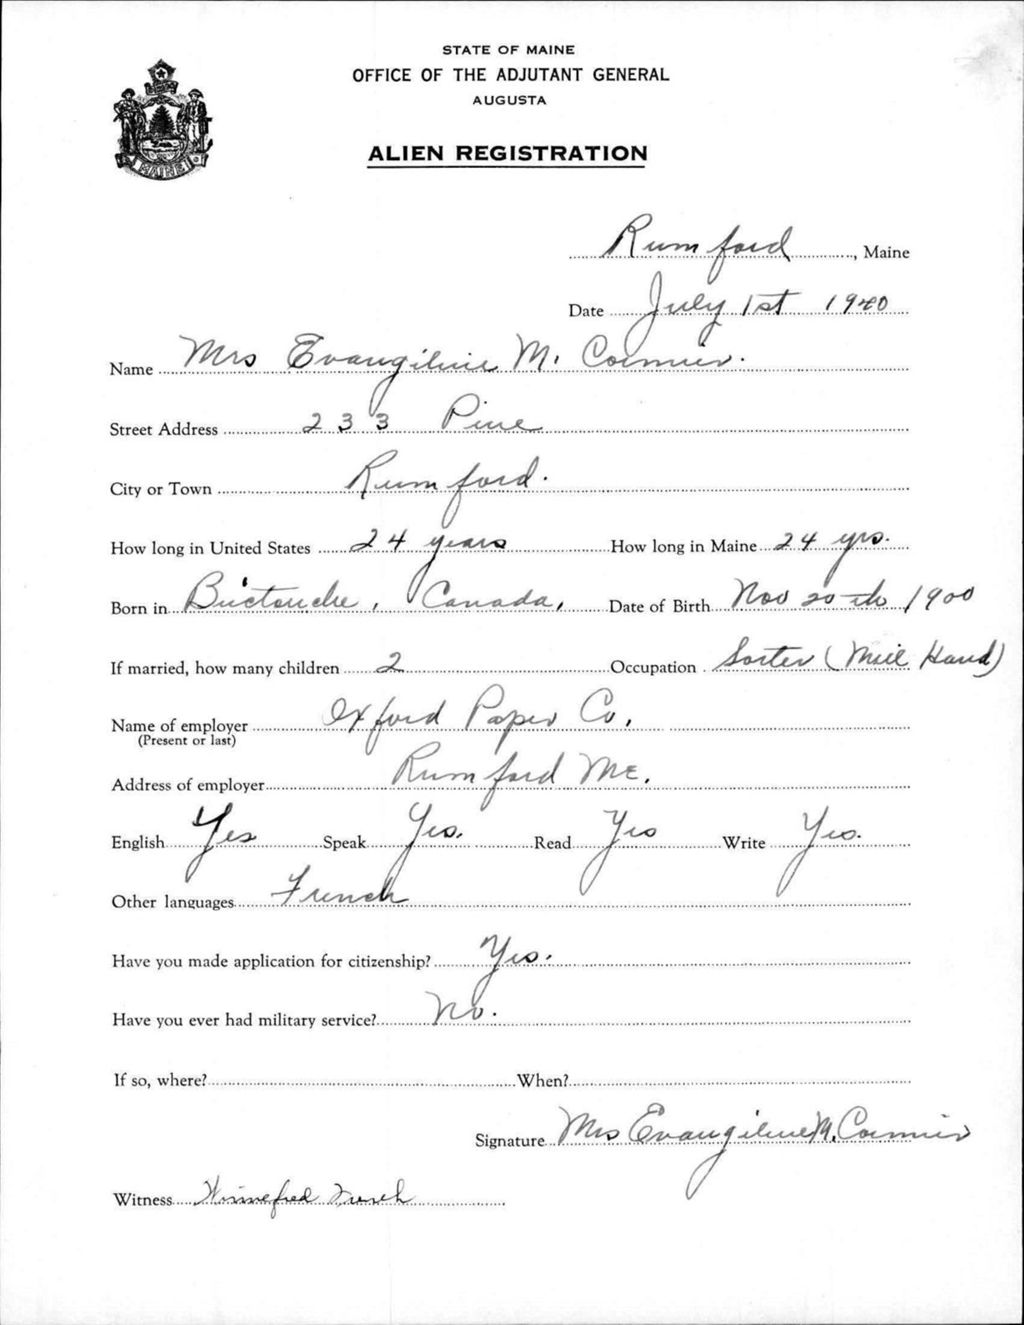 STATE OF MAINE
OFFICE OF THE ADJUTANT GENERAL
AUGUSTA
ALIEN REGISTRATION
MAINE
Rumford, Maine
Date July 1st 1940
Name Mrs Evangiline M. Cormier.
Street Address 233 Pine
City or Town Rumford.
How long in United States 24 years How long in Maine 24 yrs.
Born in Buctouche, Canada, Date of Birth Nov 20th 1900
If married, how many children 2 Occupation Sorter (Mill Hand)
Name of employer Oxford Paper Co.
(Present or last)
Address of employer Rumford ME.
English Yes Speak Yes. Read Yes Write Yes.
Other languages French
Have you made application for citizenship? Yes.
Have you ever had military service? No.
If so, where? When?
Signature Mrs Evangiline M. Cormier
Witness Winnefred